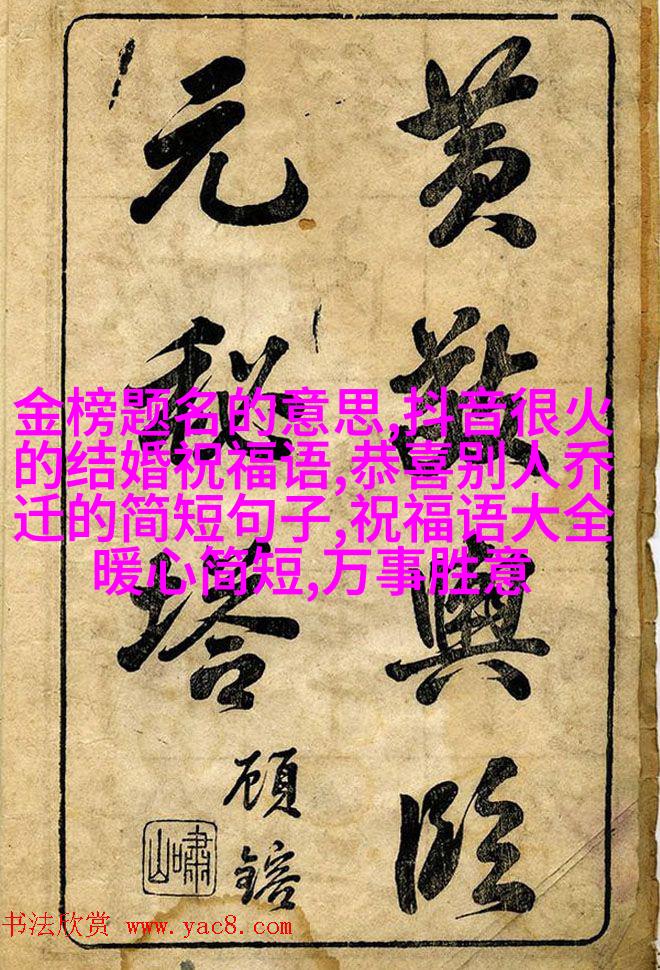 黄敬輿临
元秘塔
頋鎔
嘯山
金榜题名的意思,抖音很火
的结婚祝福语,恭喜别人乔
迁的简短句子,祝福语大全
暖心简短,万事胜意
书法欣赏 www.yac8.com